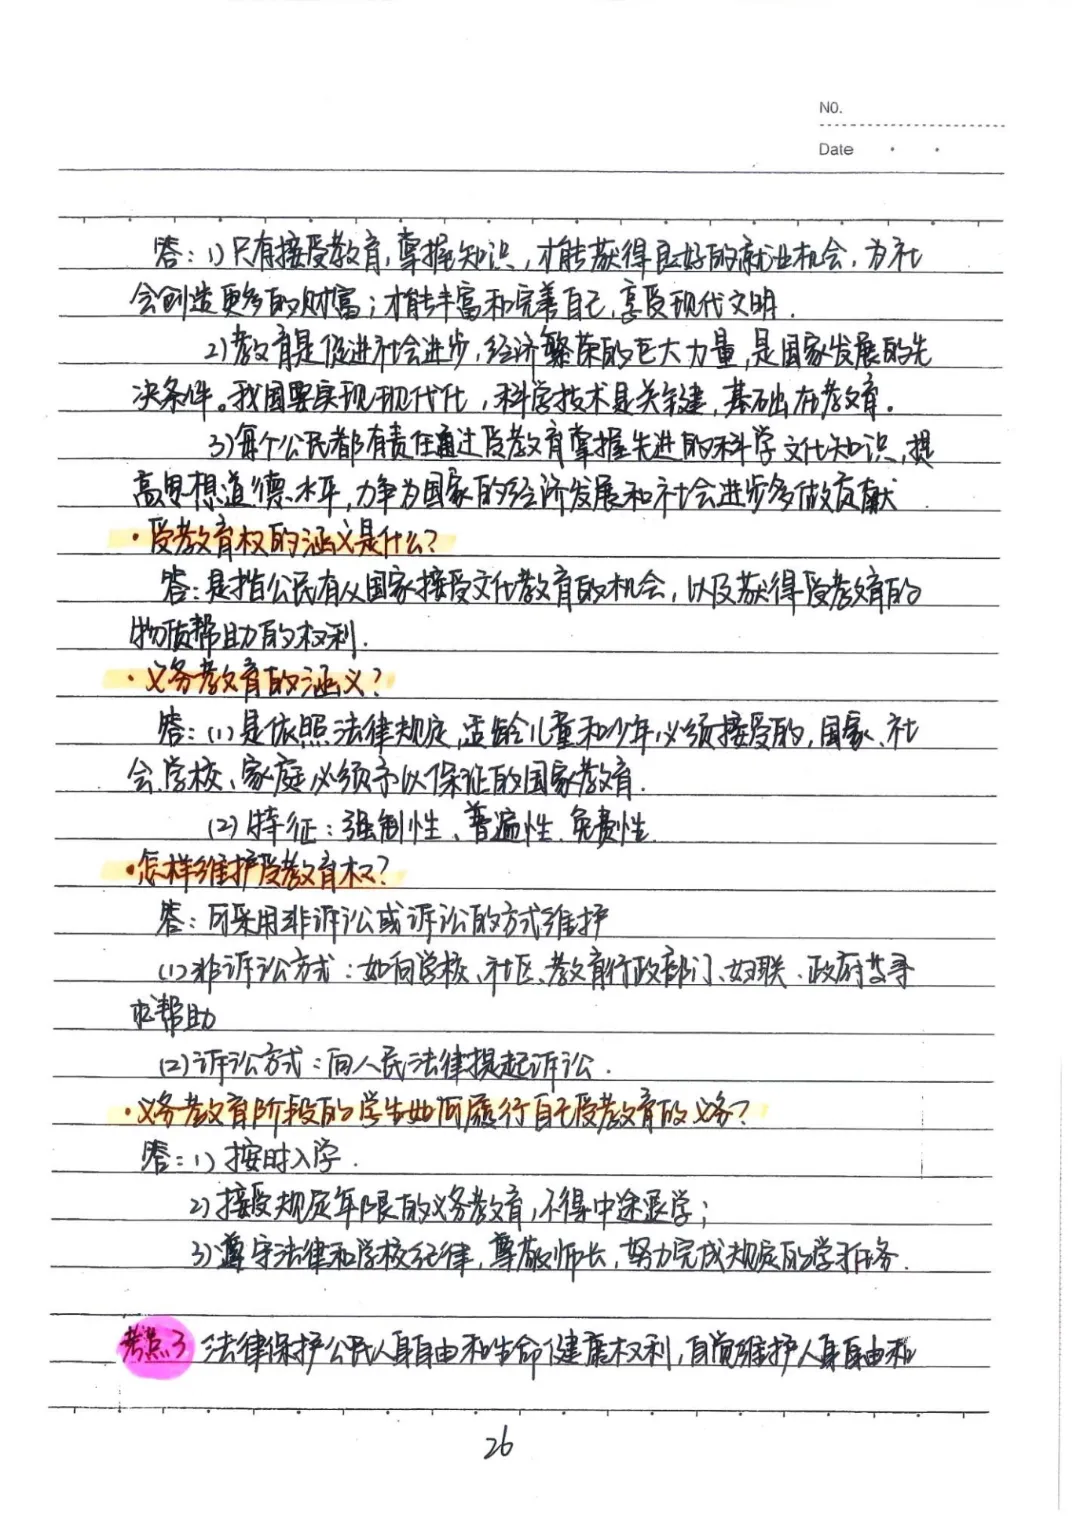 NO.
Date
答：1）只有接受教育，掌握知识，才能获得良好的就业机会，为社
会创造更多的财富；才能丰富和完善自己，享受现代文明．
2）教育是促进社会进步，经济繁荣的巨大力量，是国家发展的先
决条件。我国要实现现代化，科学技术是关键，基础在教育．
3）每个公民都有责任通过受教育掌握先进的科学文化知识，提
高思想道德水平，力争为国家的经济发展和社会进步多做贡献
·受教育权的涵义是什么？
答：是指公民有从国家接受文化教育的机会，以及获得受教育的
物质帮助的权利．
·义务教育的涵义？
答：（1）是依照法律规定，适龄儿童和少年必须接受的，国家、社
会、学校、家庭必须予以保证的国家教育．
（2）特征：强制性、普遍性、免费性．
·怎样维护受教育权？
答：可采用非诉讼或诉讼的方式维护
（1）非诉讼方式：如向学校、社区、教育行政部门、妇联、政府等寻
求帮助
（2）诉讼方式：向人民法律提起诉讼．
·义务教育阶段的学生如何履行自己受教育的义务？
答：1）按时入学．
2）接受规定年限的义务教育，不得中途退学；
3）遵守法律和学校纪律，尊敬师长，努力完成规定的学习任务．
考点3 法律保护公民人身自由和生命健康权利，自觉维护人身自由和
26